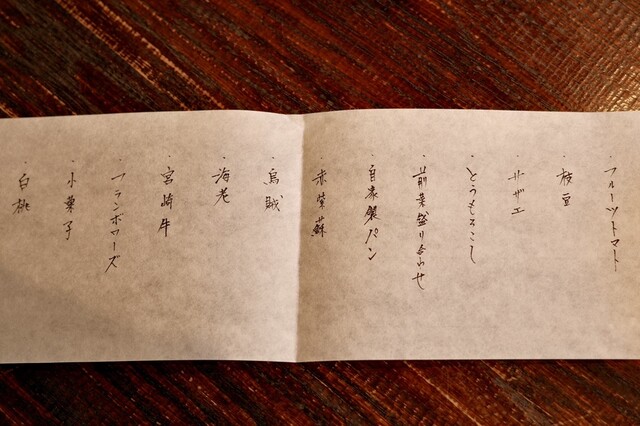 ・フルーツトマト
・枝豆
・サザエ
・とうもろこし
・前菜盛り合わせ
・自家製パン
・赤紫蘇
・烏賊
・海老
・宮崎牛
・フランボワーズ
・小菓子
・白桃